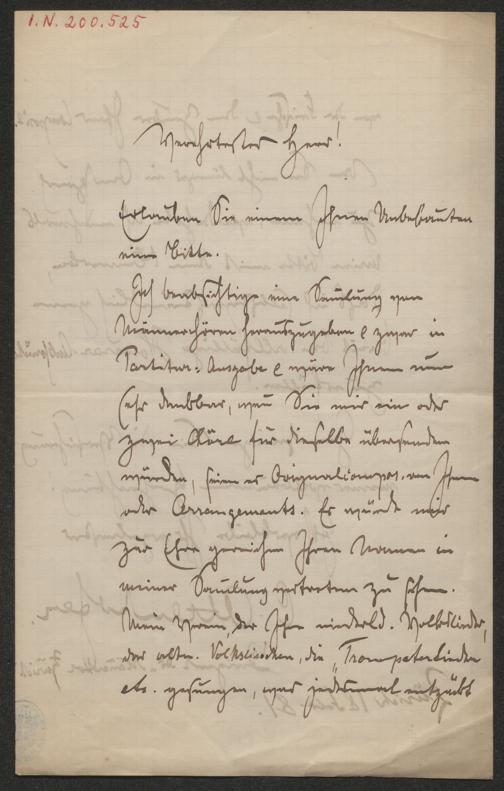 I.N. 200.525
Verehrtester Herr!
Erlauben Sie einem Ihnen Unbekannten
eine Bitte.
Ich beabsichtige eine Sammlung von
Männerchören herauszugeben & zwar in
Partitur: Ausgabe & wäre Ihnen nun
sehr dankbar, wenn Sie mir ein oder
zwei Chöre für dieselbe übersenden
würden, seien es Originalcompos. von Ihnen
oder Arrangements. Es würde mir
zur Ehre gereichen Ihren Namen in
meiner Sammlung vertreten zu sehen.
Mein Verein, der Ihre niederld. Volkslieder,
der altn. Volksliedchen, die "Trompeterlieder
etc. gesungen, war jedesmal entzückt